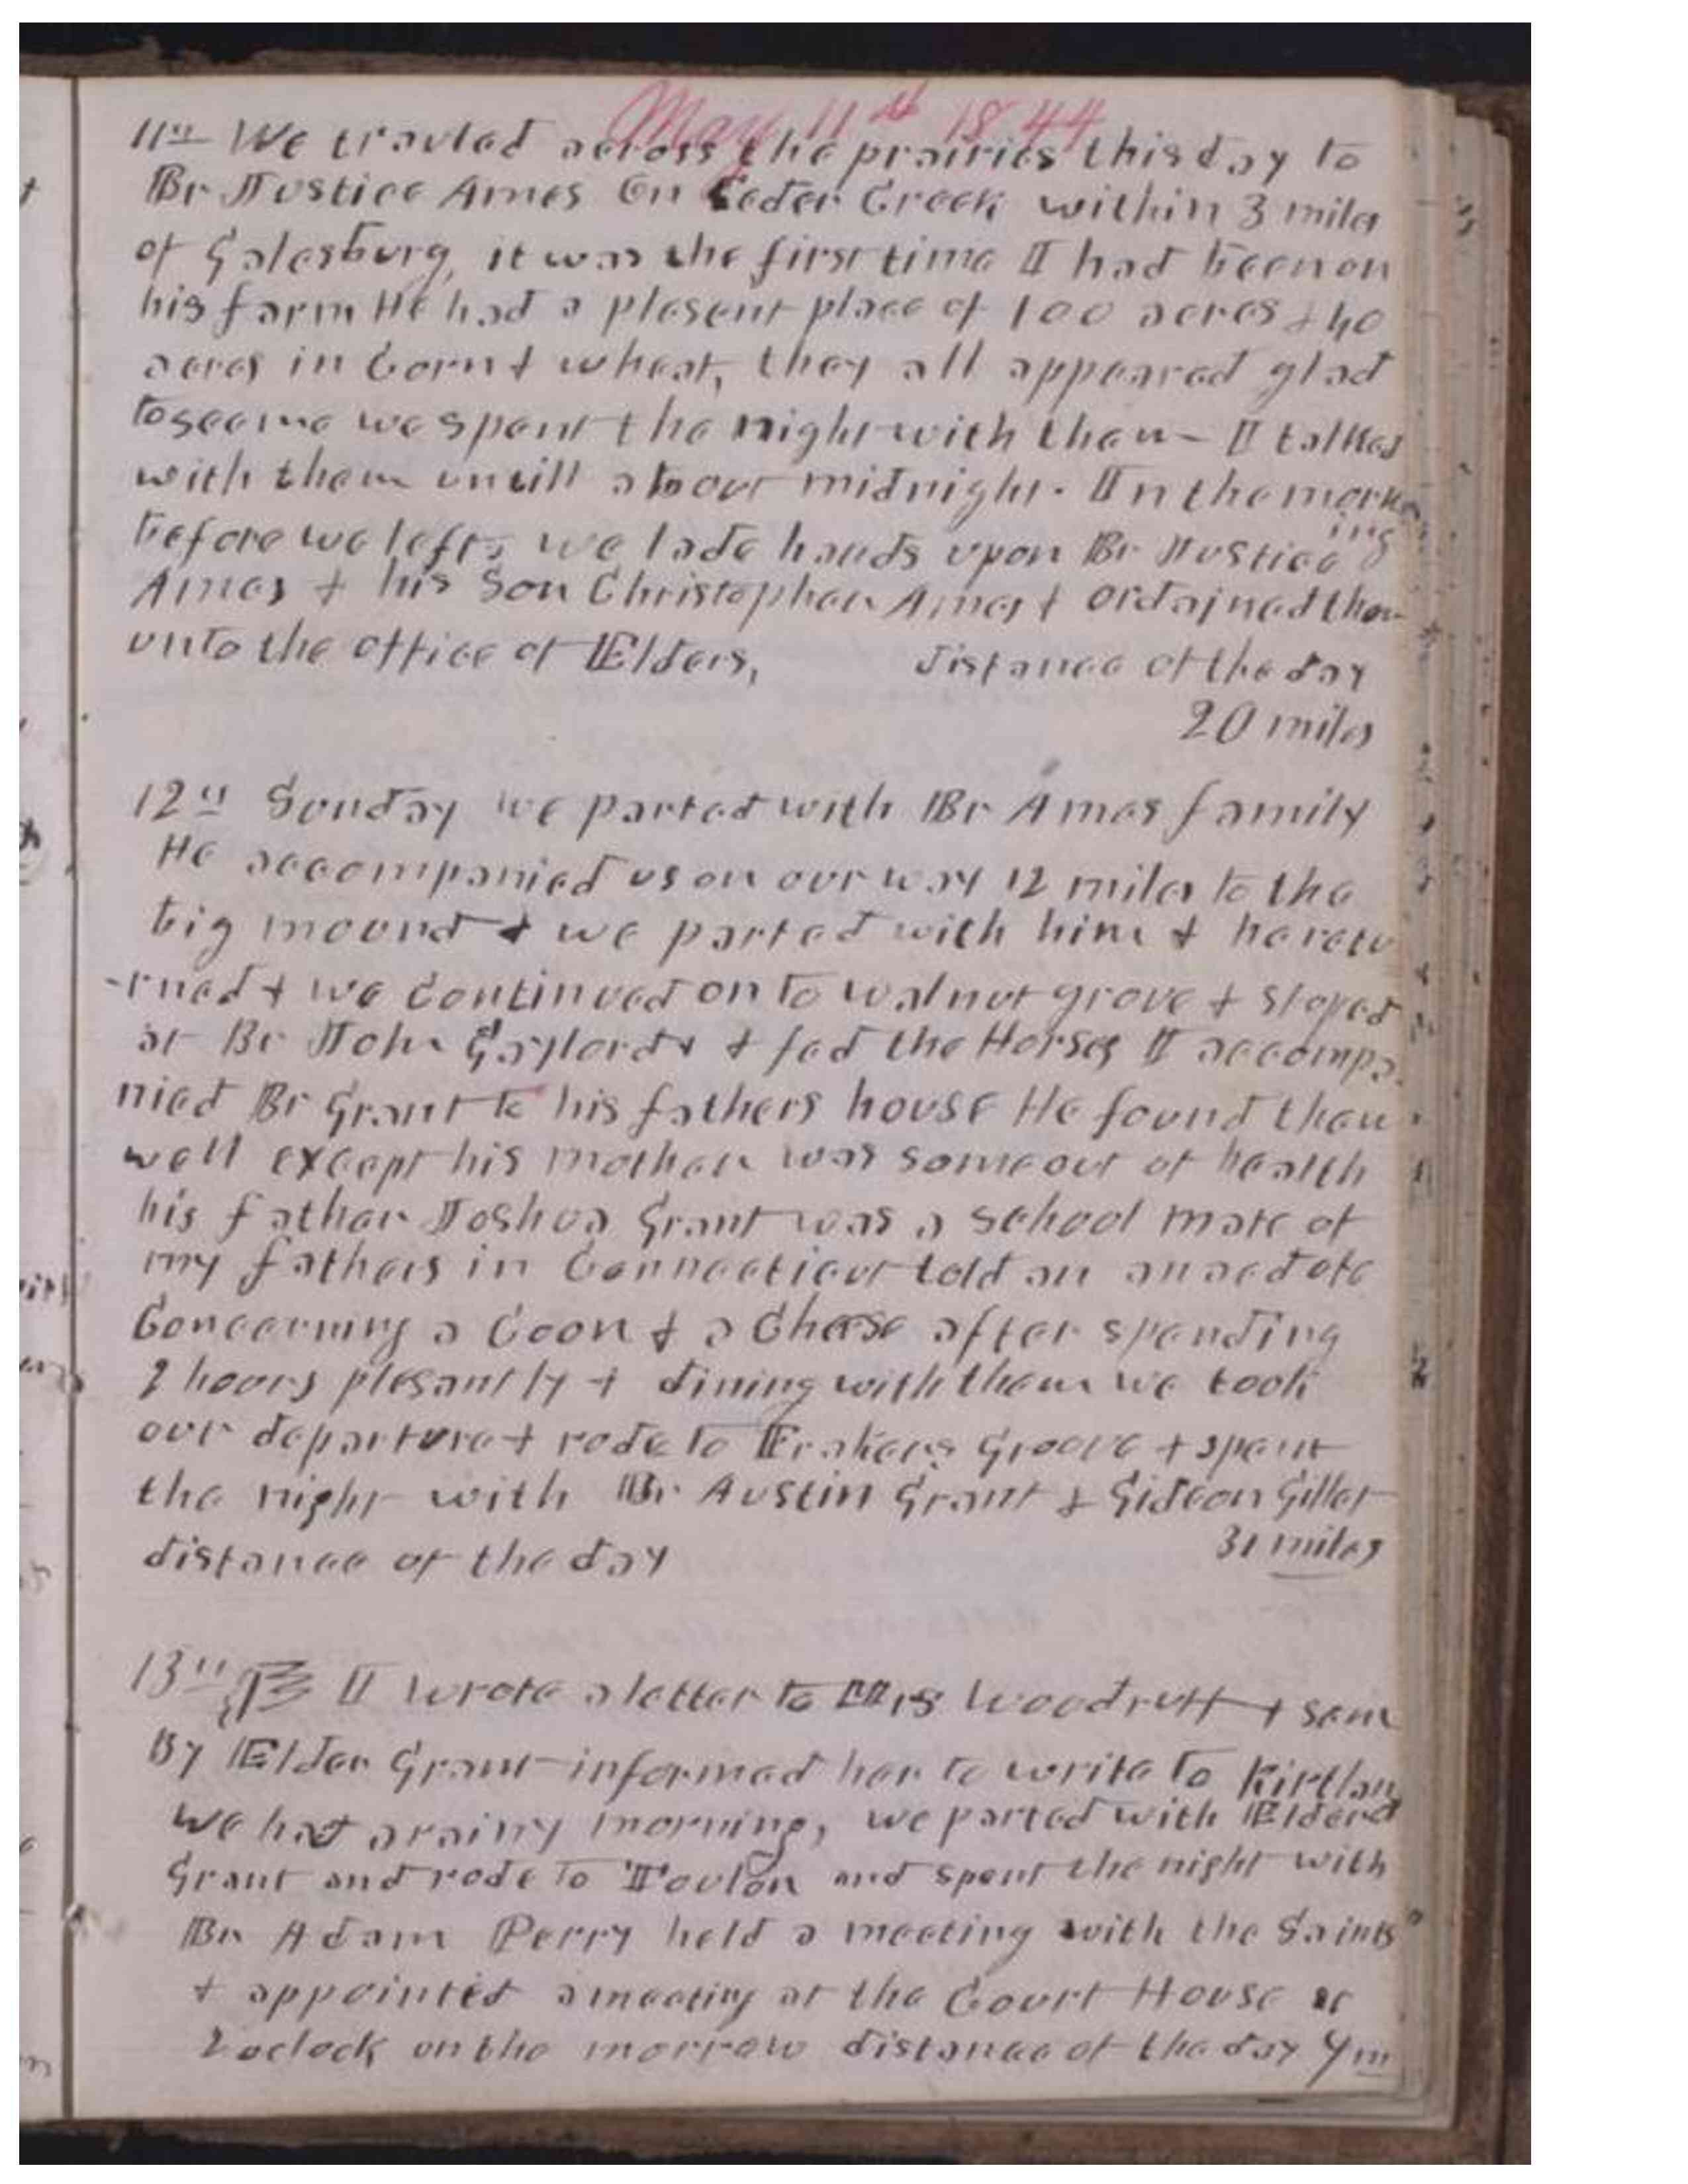 May 11th 1844
11th We travled across the prairies this day to
Br Justice Ames on Ceder Creek within 3 miles
of Galesburg, it was the first time I had been on
his farm He had a plesent place of 100 acres & 40
acres in Corn & wheat, they all appeared glad
to see me we spent the night with them - I talked
with them untill about midnight. In the morn
ing
before we left, we lade hands upon Br Justice
Ames & his Son Christopher Ames & ordained them
unto the office of Elders, distance of the day
20 miles
12th Sunday we parted with Br Ames family
He accompanied us on our way 12 miles to the
big mound & we parted with him & he retu
-rned & we continued on to walnut grove & stoped
at Br John Gaylords & fed the Horses I accompa
nied Br Grant to his fathers house He found them
well except his mother was some out of health
his father Joshua Grant was a school mate of
my fathers in Connecticut told an anecdote
Concerning a Coon & a Chease after spending
2 hours plesantly & dining with them we took
our departure & rode to Frakers Groove & spent
the night with Br Austin Grant & Gideon Gillet
distance of the day 31 miles
13th I wrote a letter to Mrs Woodruff & sent
By Elder Grant informed her to write to Kirtland
We had a rainy morning, we parted with Elder
Grant and rode to Toulon and spent the night with
Br Adam Perry held a meeting with the Saints
& appointed a meeting at the Court House at
2 oclock on the morrow distance of the day 9 m